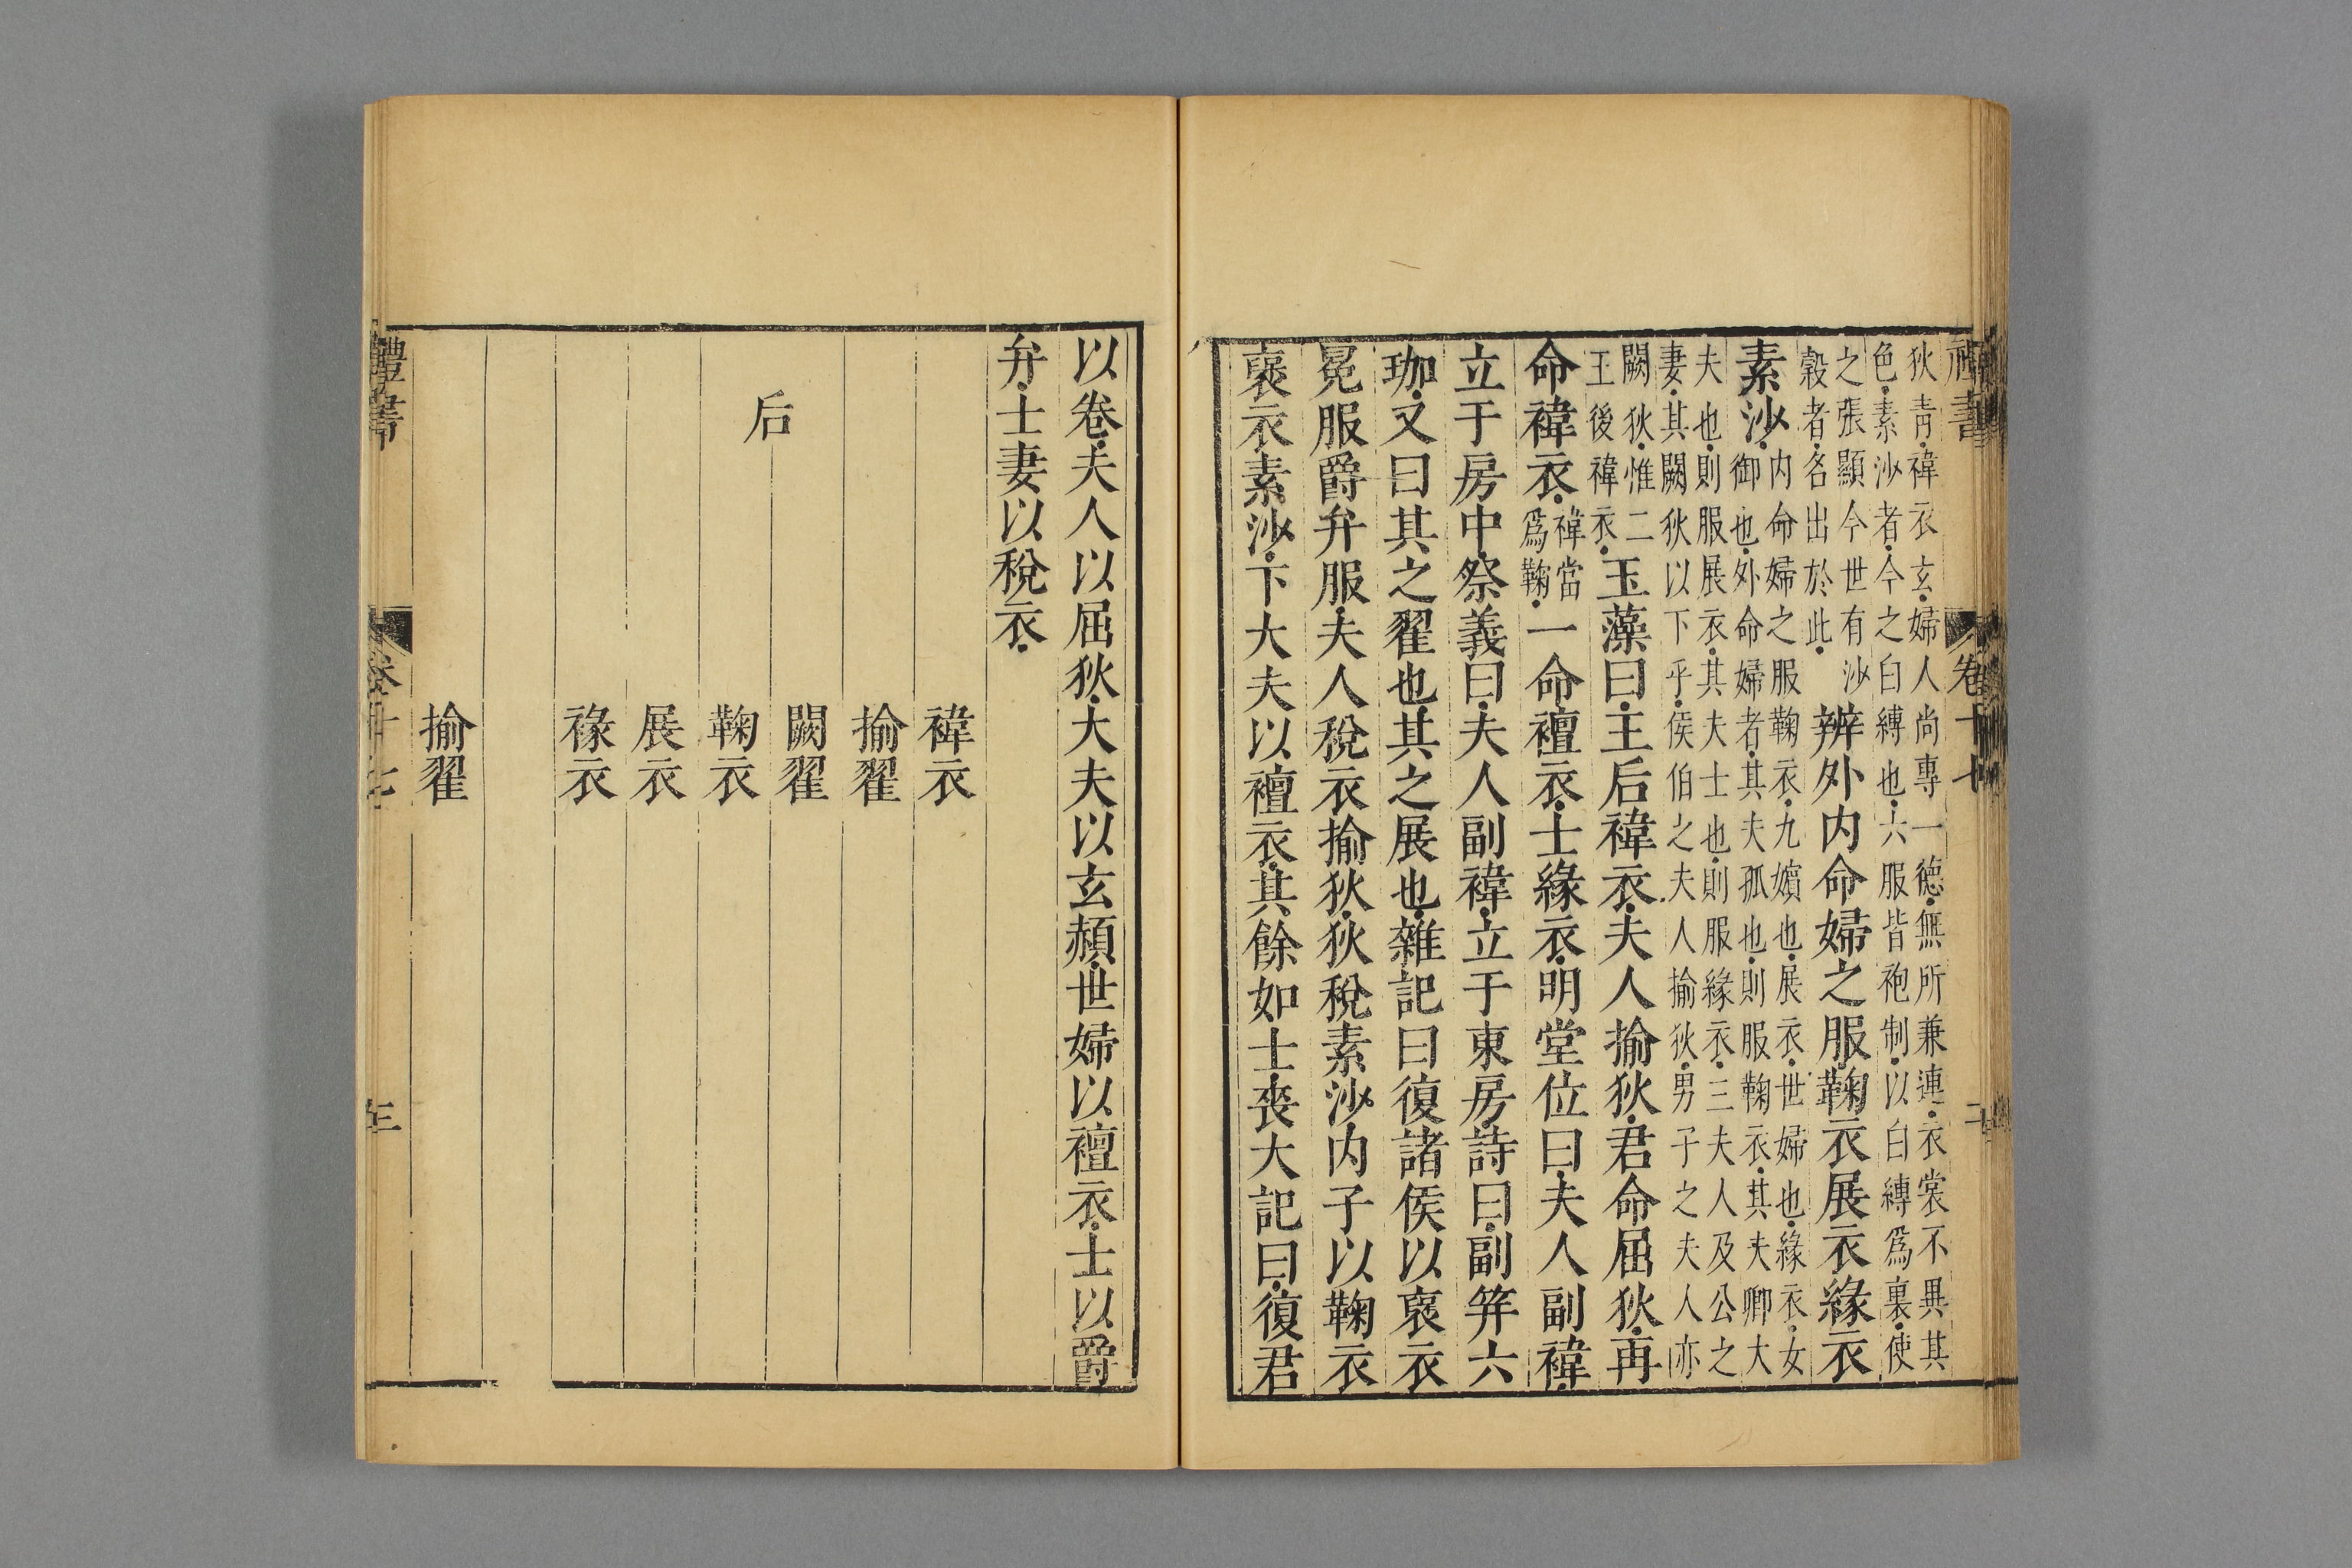 禮書
卷十七
二
狄青.褘衣玄.婦人尚專一德.無所兼連.衣裳不異其
色.素沙者.今之白縛也.六服皆袍制.以白縛爲裏.使
之張顯今世有沙
縠者.名出於此.
辨外内命婦之服.鞠衣展衣緣衣
素沙.
内命婦之服鞠衣.九嬪也.展衣.世婦也.緣衣.女
御也.外命婦者.其夫孤也.則服鞠衣.其夫卿大
夫也.則服展衣.其夫士也.則服緣衣.三夫人及公之
妻.其闕狄以下乎.侯伯之夫人揄狄.男子之夫人亦
闕狄.惟二
王後褘衣.
玉藻曰.王后褘衣.夫人揄狄.君命屈狄.再
命褘衣.
褘當
爲鞠.
一命襢衣.士緣衣.明堂位曰.夫人副褘.
立于房中.祭義曰.夫人副褘.立于東房.詩曰.副笄六
珈.又曰其之翟也.其之展也.雜記曰復諸侯以襃衣
冕服爵弁服.夫人稅衣揄狄.狄稅素沙.内子以鞠衣
襃衣素沙.下大夫以襢衣.其餘如士.喪大記曰.復君
以卷.夫人以屈狄.大夫以玄赬.世婦以襢衣.士以爵
弁.士妻以稅衣.
褘衣
揄翟
闕翟
后
鞠衣
展衣
褖衣
揄翟
禮書
卷十七
三